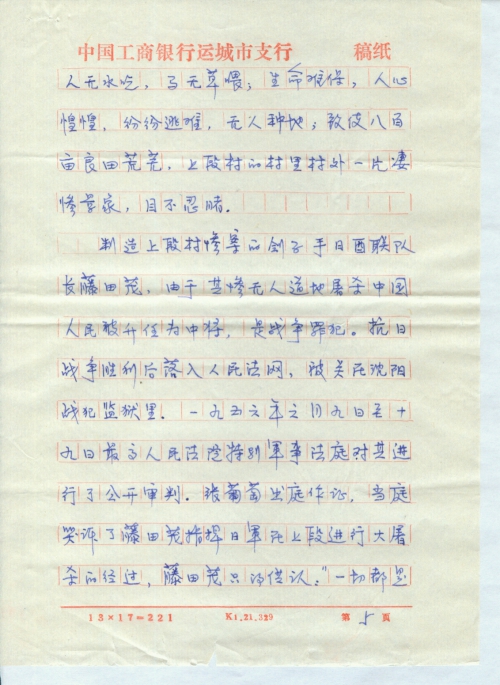 中国工商银行运城市支行 稿纸
人无水吃，马无草喂；生命难保，人心
惶惶，纷纷逃难，无人种地；致使八百
亩良田荒芜，上段村的村里村外一片凄
惨景象，目不忍睹。
制造上段村惨案的刽子手日酋联队
长藤田茂，由于其惨无人道地屠杀中国
人民被升任为中将，是战争罪犯。抗日
战争胜利后落入人民法网，被关在沈阳
战犯监狱里。一九五六年六月九日至十
九日最高人民法院特别军事法庭对其进
行了公开审判。张葡萄出庭作证，当庭
哭诉了藤田茂指挥日军在上段进行大屠
杀的经过，藤田茂只得供认："一切都是
13×17=221 K1.21.329 第 5 页